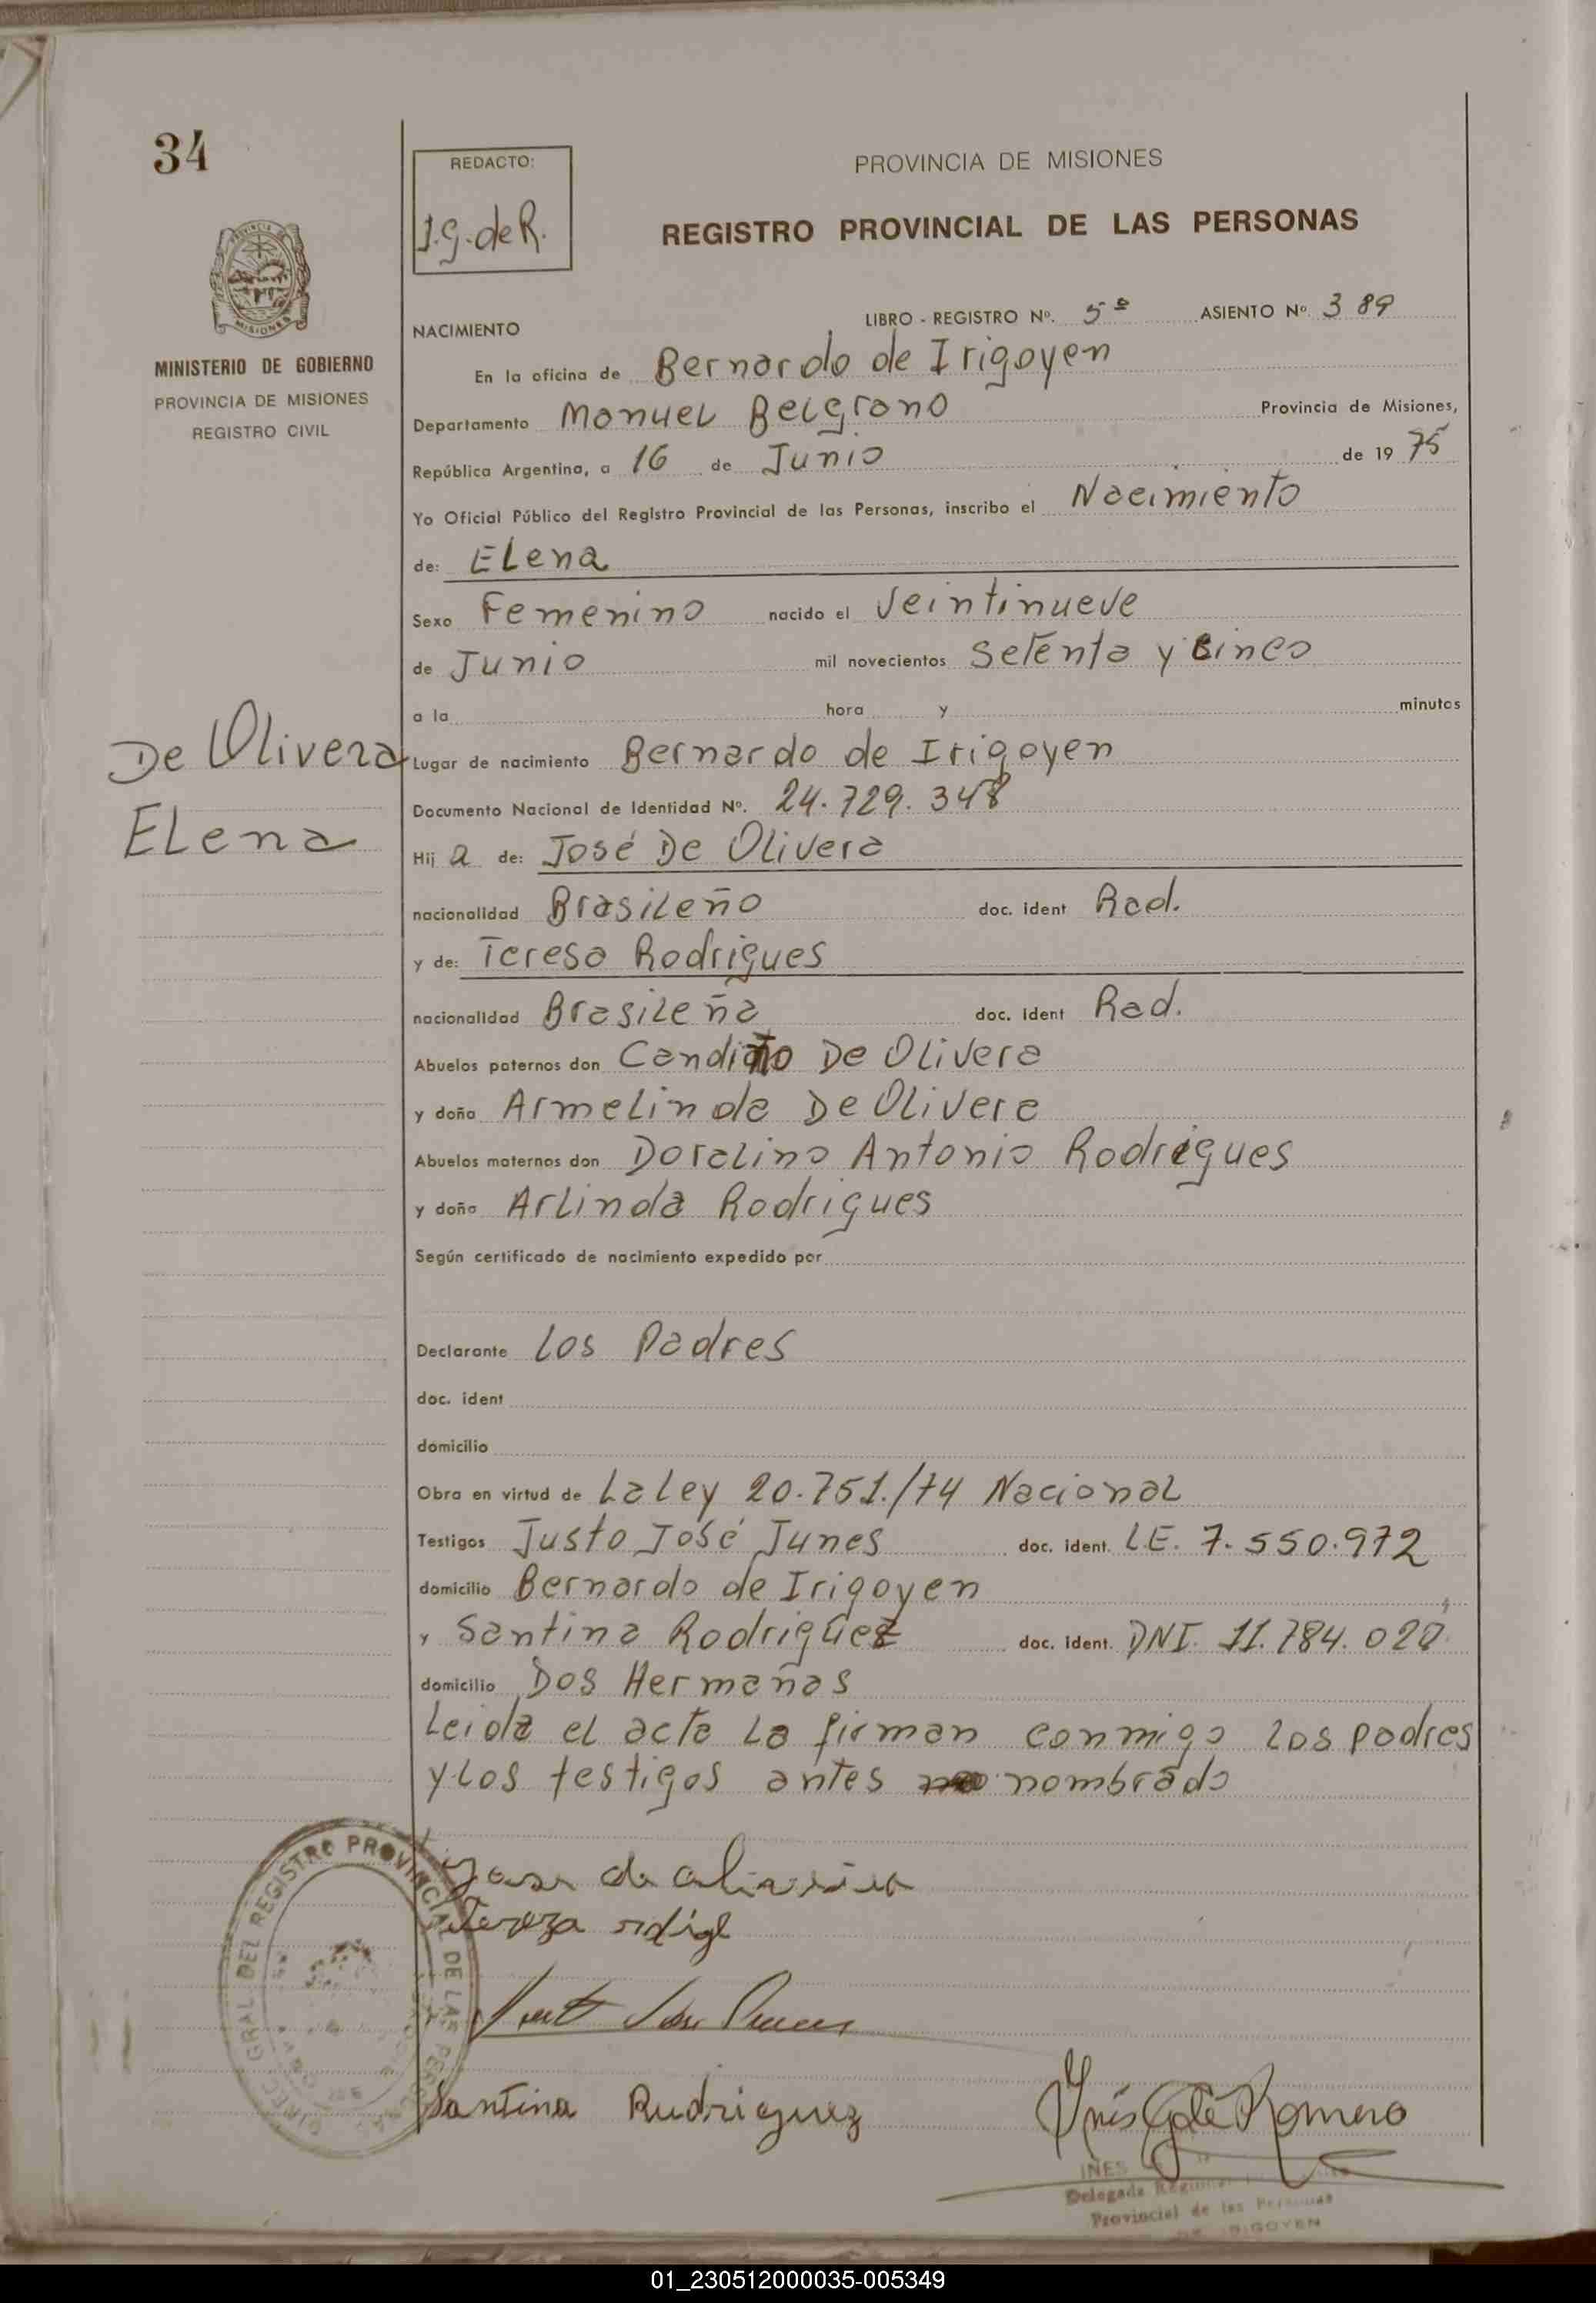 34
REDACTO:
I.G. de R.
PROVINCIA DE MISIONES
REGISTRO PROVINCIAL DE LAS PERSONAS
MISIONES
MINISTERIO DE GOBIERNO
PROVINCIA DE MISIONES
REGISTRO CIVIL
NACIMIENTO LIBRO - REGISTRO Nº. 5º ASIENTO Nº 389
En la oficina de Bernardo de Irigoyen
Departamento Manuel Belgrano Provincia de Misiones,
República Argentina, a 16 de Junio de 19 75
Yo Oficial Público del Registro Provincial de las Personas, inscribo el Nacimiento
de: Elena
Sexo Femenino nacido el Veintinueve
de Junio mil novecientos Setenta y Cinco
a la hora y minutos
De Olivera
Elena
Lugar de nacimiento Bernardo de Irigoyen
Documento Nacional de Identidad Nº. 24.729.348
Hij a de: José De Olivera
nacionalidad Brasileño doc. ident Rad.
y de: Teresa Rodrigues
nacionalidad Brasileña doc. ident Rad.
Abuelos paternos don Candido De Olivera
y doña Armelinda De Olivera
Abuelos maternos don Doralino Antonio Rodrigues
y doña Arlinda Rodrigues
Según certificado de nacimiento expedido por
Declarante Los Padres
doc. ident
domicilio
Obra en virtud de La Ley 20.751./74 Nacional
Testigos Justo José Junes doc. ident. L.E. 7.550.972
domicilio Bernardo de Irigoyen
y Santina Rodriguez doc. ident. DNI. 11.784.020
domicilio Dos Hermanas
Leida el acta la firman conmigo los padres
y los testigos antes nombrado
DEL REGISTRO PROVINCIAL DE LAS PERSONAS
Tereza
Santina Rudriguez
Inés G de Romero
INES
Delegada
Provincial de las Personas
IRIGOYEN
01_230512000035-005349